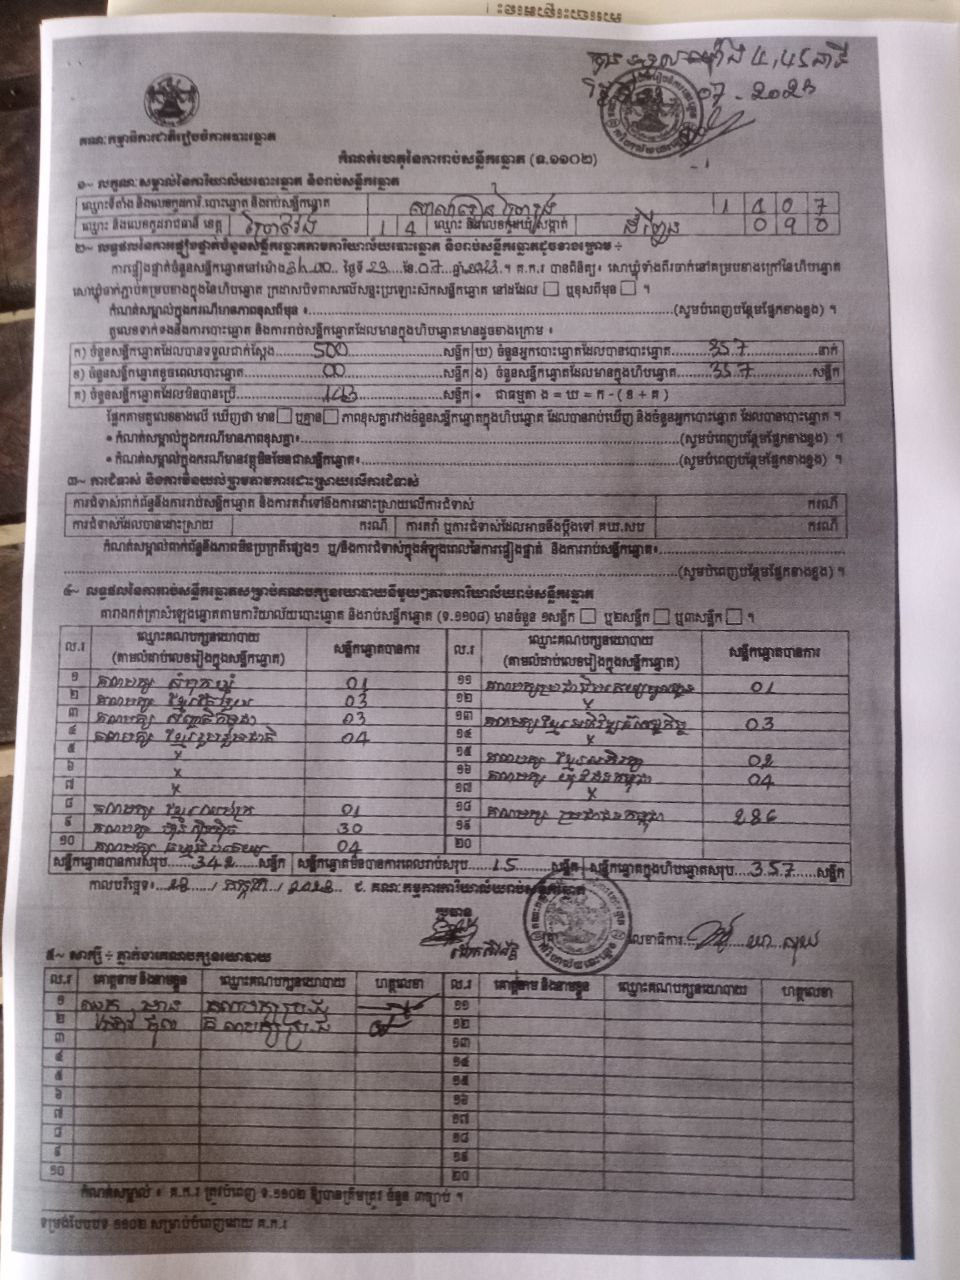 គណៈកម្មាធិការជាតិរៀបចំការបោះឆ្នោត
07 - 2023
កំណត់ហេតុនៃការរាប់សន្លឹកឆ្នោត (ទ.១១០២)
១~ លក្ខណៈសម្គាល់នៃការិយាល័យបោះឆ្នោត និងរាប់សន្លឹកឆ្នោត
ឈ្មោះទីតាំង និងលេខកូដការិ.បោះឆ្នោត និងរាប់សន្លឹកឆ្នោត
ឈ្មោះ និងលេខកូដរាជធានី ខេត្ត ព្រៃវែង 1 4 ឈ្មោះ និងលេខកូដឃុំ សង្កាត់ 0 9 0
២~ លទ្ធផលនៃការផ្ទៀងផ្ទាត់ចំនួនសន្លឹកឆ្នោតតាមការិយាល័យបោះឆ្នោត និងរាប់សន្លឹកឆ្នោតដូចខាងក្រោម ÷
ការផ្ទៀងផ្ទាត់ចំនួនសន្លឹកឆ្នោតនៅម៉ោង ថ្ងៃទី 23 ខែ 07 ឆ្នាំ 2023 ។ គ.ក.រ បានពិនិត្យ៖ សោឃ្លុំទាំងពីរចាក់នៅគម្របខាងក្រៅនៃហិបឆ្នោត
សោឃ្លុំចាក់ភ្ជាប់គម្របខាងក្នុងនៃហិបឆ្នោត ក្រដាសបិទពាសលើសន្ទះប្រឡោះស៊កសន្លឹកឆ្នោត នៅដដែល □ ឬខុសពីមុន □ ។
កំណត់សម្គាល់ក្នុងករណីមានភាពខុសពីមុន ៖ (សូមបំពេញបន្ថែមផ្នែកខាងខ្នង) ។
តួលេខទាក់ទងនឹងការបោះឆ្នោត និងការរាប់សន្លឹកឆ្នោតដែលមានក្នុងហិបឆ្នោតមានដូចខាងក្រោម ៖
ក) ចំនួនសន្លឹកឆ្នោតដែលបានទទួលជាក់ស្តែង 500 សន្លឹក ឃ) ចំនួនអ្នកបោះឆ្នោតដែលបានបោះឆ្នោត 357 នាក់
ខ) ចំនួនសន្លឹកឆ្នោតខូចពេលបោះឆ្នោត 00 សន្លឹក ង) ចំនួនសន្លឹកឆ្នោតដែលមានក្នុងហិបឆ្នោត 357 សន្លឹក
គ) ចំនួនសន្លឹកឆ្នោតដែលមិនបានប្រើ 143 សន្លឹក • ជាធម្មតា ង = ឃ = ក - ( ខ + គ )
ផ្អែកតាមតួលេខខាងលើ ឃើញថា មាន □ ឬគ្មាន □ ភាពខុសគ្នារវាងចំនួនសន្លឹកឆ្នោតក្នុងហិបឆ្នោត ដែលបានរាប់ឃើញ និងចំនួនអ្នកបោះឆ្នោត ដែលបានបោះឆ្នោត ។
• កំណត់សម្គាល់ក្នុងករណីមានភាពខុសគ្នា៖ (សូមបំពេញបន្ថែមផ្នែកខាងខ្នង) ។
• កំណត់សម្គាល់ក្នុងករណីមានវត្ថុមិនមែនជាសន្លឹកឆ្នោត៖ (សូមបំពេញបន្ថែមផ្នែកខាងខ្នង) ។
៣~ ការជំទាស់ និងការមិនយល់ព្រមតាមការដោះស្រាយលើការជំទាស់
ការជំទាស់ពាក់ព័ន្ធនឹងការរាប់សន្លឹកឆ្នោត និងការតវ៉ាទៅនឹងការដោះស្រាយលើការជំទាស់ ករណី
ការជំទាស់ដែលបានដោះស្រាយ ករណី ការតវ៉ា ឬការជំទាស់ដែលអាចនឹងប្តឹងទៅ គឃ.សប ករណី
កំណត់សម្គាល់ពាក់ព័ន្ធនឹងភាពមិនប្រក្រតីផ្សេងៗ ឬ/និងការជំទាស់ក្នុងអំឡុងពេលនៃការផ្ទៀងផ្ទាត់ និងការរាប់សន្លឹកឆ្នោត៖
(សូមបំពេញបន្ថែមផ្នែកខាងខ្នង) ។
៤~ លទ្ធផលនៃការរាប់សន្លឹកឆ្នោតសម្រាប់គណបក្សនយោបាយនីមួយៗតាមការិយាល័យបោះឆ្នោត និងរាប់សន្លឹកឆ្នោត
តារាងកត់ត្រាសំឡេងឆ្នោតតាមការិយាល័យបោះឆ្នោត និងរាប់សន្លឹកឆ្នោត (ទ.១១០៨) មានចំនួន ១សន្លឹក □ ឬ២សន្លឹក □ ឬ៣សន្លឹក □ ។
ល.រ ឈ្មោះគណបក្សនយោបាយ (តាមលំដាប់លេខរៀងក្នុងសន្លឹកឆ្នោត) សន្លឹកឆ្នោតបានការ ល.រ ឈ្មោះគណបក្សនយោបាយ (តាមលំដាប់លេខរៀងក្នុងសន្លឹកឆ្នោត) សន្លឹកឆ្នោតបានការ
១ គណបក្ស សំបុកឃ្មុំ 01 ១១ 01
២ គណបក្ស ខ្មែរតែមួយ 03 ១២ x
៣ គណបក្ស សញ្ជាតិកម្ពុជា 03 ១៣ គណបក្សខ្មែរអភិវឌ្ឍន៍សេដ្ឋកិច្ច 03
៤ គណបក្ស ខ្មែររួបរួមជាតិ 04 ១៤ x
៥ x ១៥ គណបក្ស ខ្មែរអភិរក្ស 02
៦ x ១៦ គណបក្ស 04
៧ x ១៧ x
៨ គណបក្ស 01 ១៨ គណបក្ស ប្រជាជនកម្ពុជា 286
៩ គណបក្ស ហ៊្វុនស៊ិនប៉ិច 30 ១៩
១០ គណបក្ស 04 ២០
សន្លឹកឆ្នោតបានការសរុប 342 សន្លឹក សន្លឹកឆ្នោតមិនបានការពេលរាប់សរុប 15 សន្លឹក សន្លឹកឆ្នោតក្នុងហិបឆ្នោតសរុប 357 សន្លឹក
កាលបរិច្ឆេទ៖ 23 / កក្កដា / 2023 ជ. គណៈកម្មការការិយាល័យរាប់សន្លឹកឆ្នោត
ប្រធាន
លេខាធិការ
៥~ សាក្សី ÷ ភ្នាក់ងារគណបក្សនយោបាយ
ល.រ គោត្តនាម និងនាមខ្លួន ឈ្មោះគណបក្សនយោបាយ ហត្ថលេខា ល.រ គោត្តនាម និងនាមខ្លួន ឈ្មោះគណបក្សនយោបាយ ហត្ថលេខា
១ ១១
២ ១២
៣ ១៣
៤ ១៤
៥ ១៥
៦ ១៦
៧ ១៧
៨ ១៨
៩ ១៩
១០ ២០
កំណត់សម្គាល់ ៖ គ.ក.រ ត្រូវបំពេញ ទ.១១០២ ឱ្យបានត្រឹមត្រូវ ចំនួន ៣ច្បាប់ ។
ទម្រង់បែបបទ ១១០២ សម្រាប់បំពេញដោយ គ.ក.រ